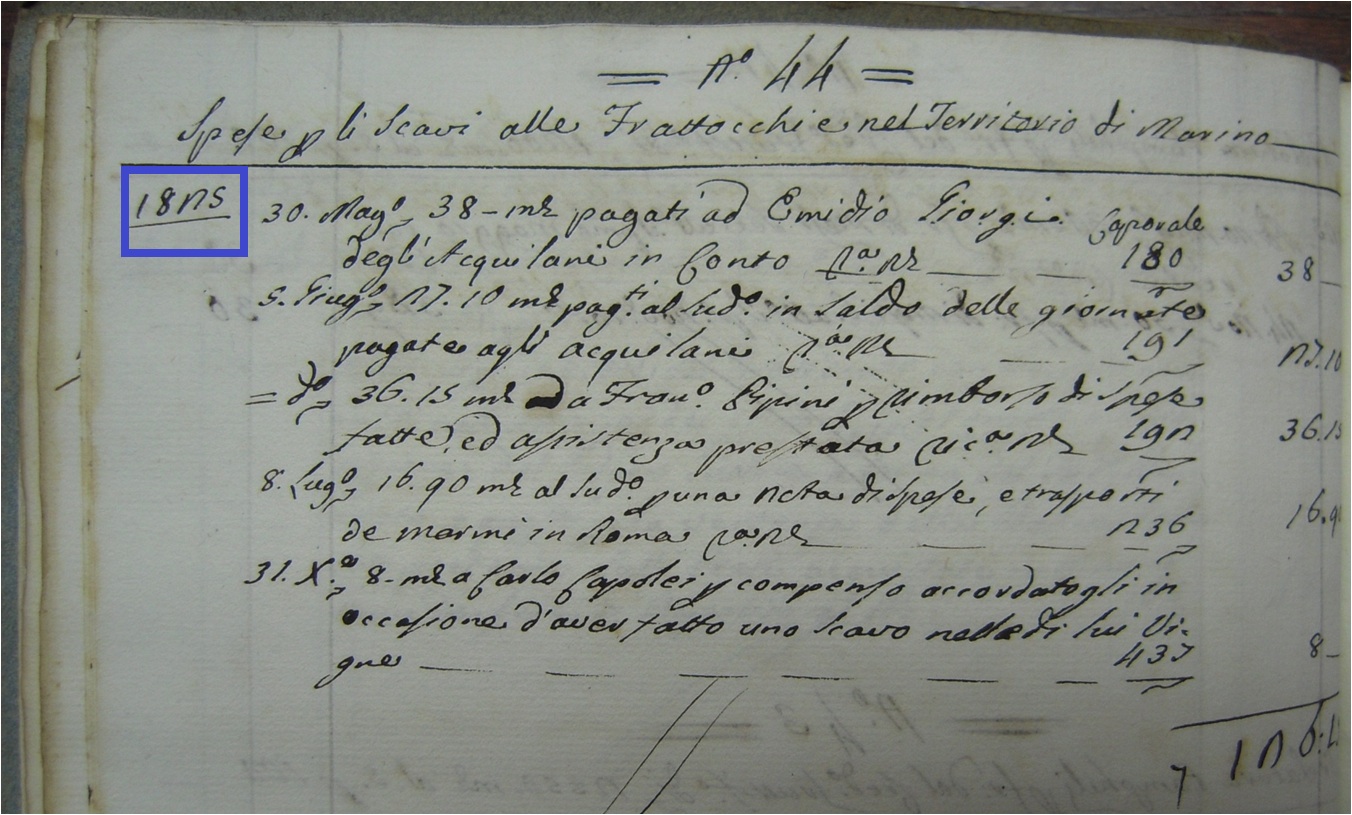 = N.º 44 =
Spese p gli Scavi alle Frattocchie nel Territorio di Marino
1825 30. Magº 38 - mta pagati ad Emidio Giorgi Caporale
degl'Acquilani in Conto 180 38 -
5. Giugº 27.10 mta pagti al sudº in saldo delle giornate
pagate agli acquilani 191 27.10
= dº 36.15 mta a Franº Pipini p rimborso di spese
fatte, ed assistenza prestata ric.a 192 36.15
8. Lugº 16.90 mta al sudº p una nota di spese, e trasporti
de marmi in Roma 236 16.90
31. Xª 8 - mta a Carlo Capolei p compenso accordatogli in
occasione d'aver fatto uno scavo nelle di lui Vi-
gne 437 8 -
126:1